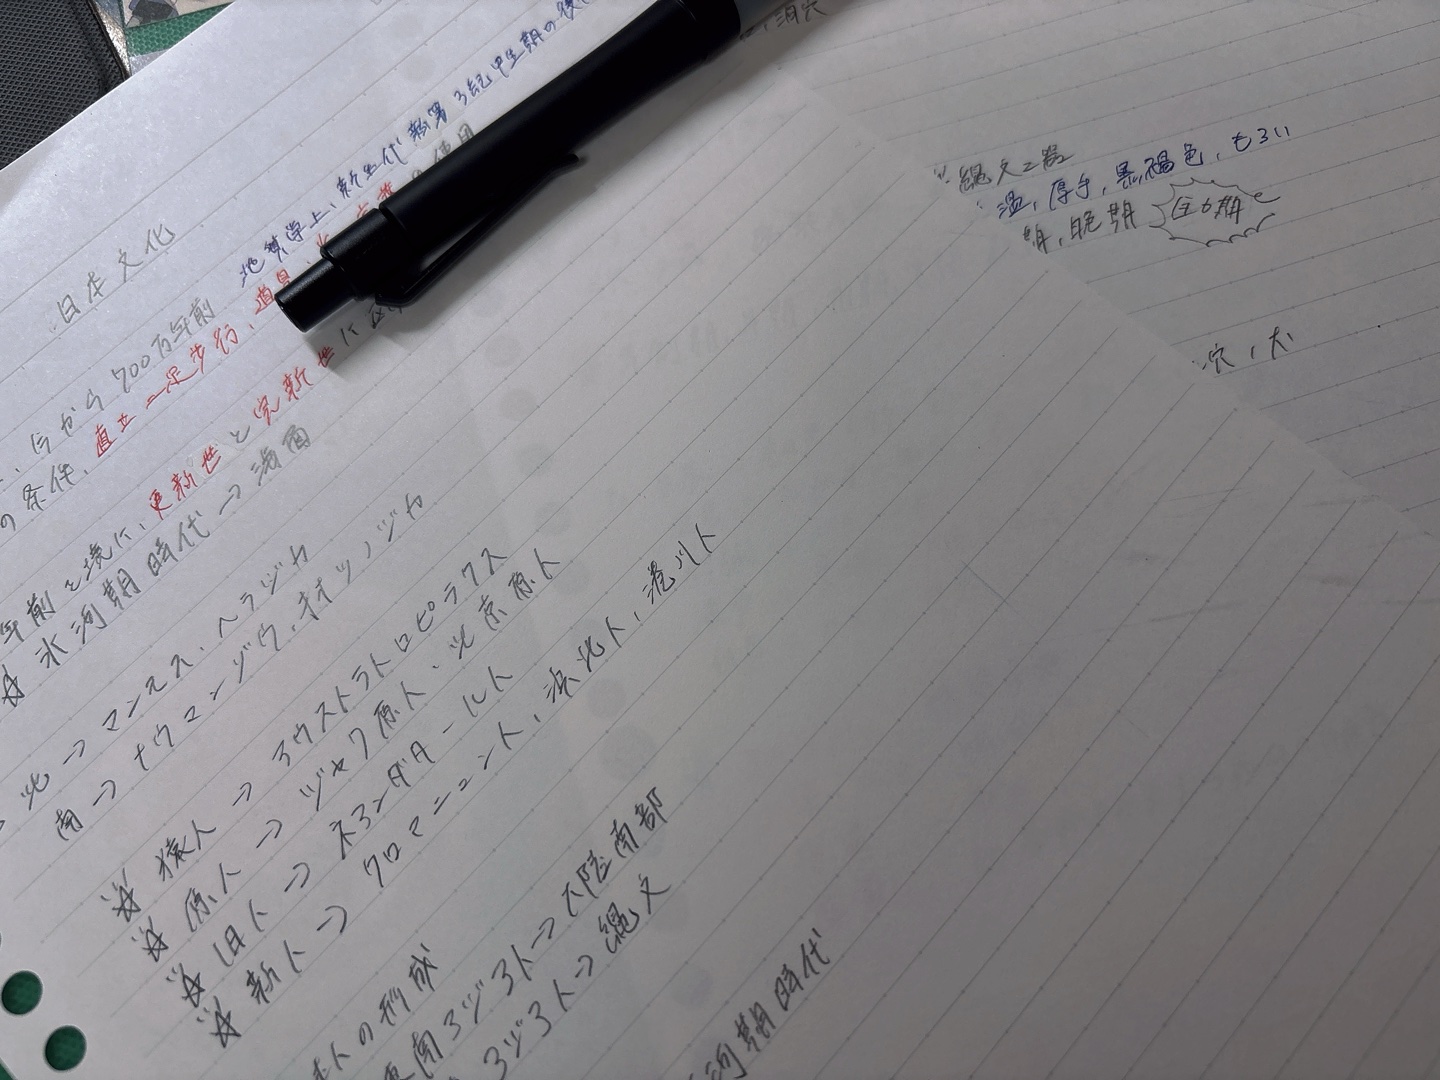 日本文化
今から700万年前 地質学上、新生代新署3紀中生期の後
の条件、直立二足歩行、道具、
年前を境に、更新世と完新世に
☆氷河期時代→海面
北→マンモス、ヘラジカ
南→ナウマンゾウ、オオツノジカ
☆猿人→アウストラトロピテクス
☆原人→ジャワ原人、北京原人
☆旧人→ネアンダタールト
☆新人→クロマニョン人、浜北人、港川人
人の形成
東南アジア人→大陸南部
アジア人→縄文
河期時代
縄文土器
温、厚手、黒褐色、もろい
期、晩期 全6期
穴、大